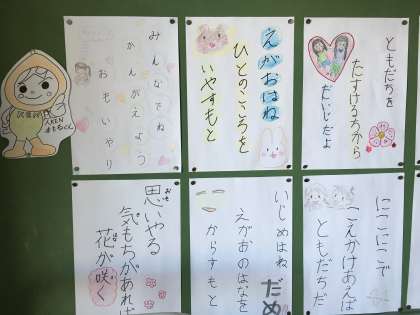 ともだちを
たすけるちから
だいじだよ
えがおはね
ひとのこころを
いやすもと
みんなでね
かんがえよう
おもいやり
にこにこで
こえかけあえば
ともだちだ
いじめはね だめ
えがおのはなを
からすもと
思いやる
おも
気もちがあれば
き
花が咲く
はな さ